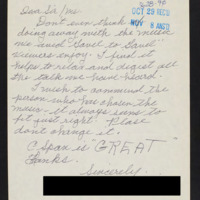 Dear Sir/Ms
OCT 29 REC'D
NOV 8 ANS'D
Don't even think of
doing away with the music
me and "Coast to Coast"
viewers enjoy. I find it
helps to relax and digest all
the talk we have heard.
I wish to commend the
person who has chosen the
music. It always seems to
fit just right. Please
don't change it.
C Span is "GREAT"
Thanks.
Sincerely,